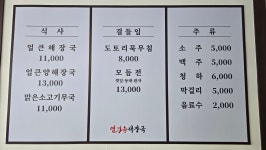 식 사
얼큰해장국
11,000
얼큰양해장국
13,000
맑은소고기무국
11,000
곁들임
도토리묵무침
8,000
모듬전
13,000
주 류
소 주 5,000
맥 주 5,000
청 하 6,000
막걸리 5,000
음료수 2,000
해장국